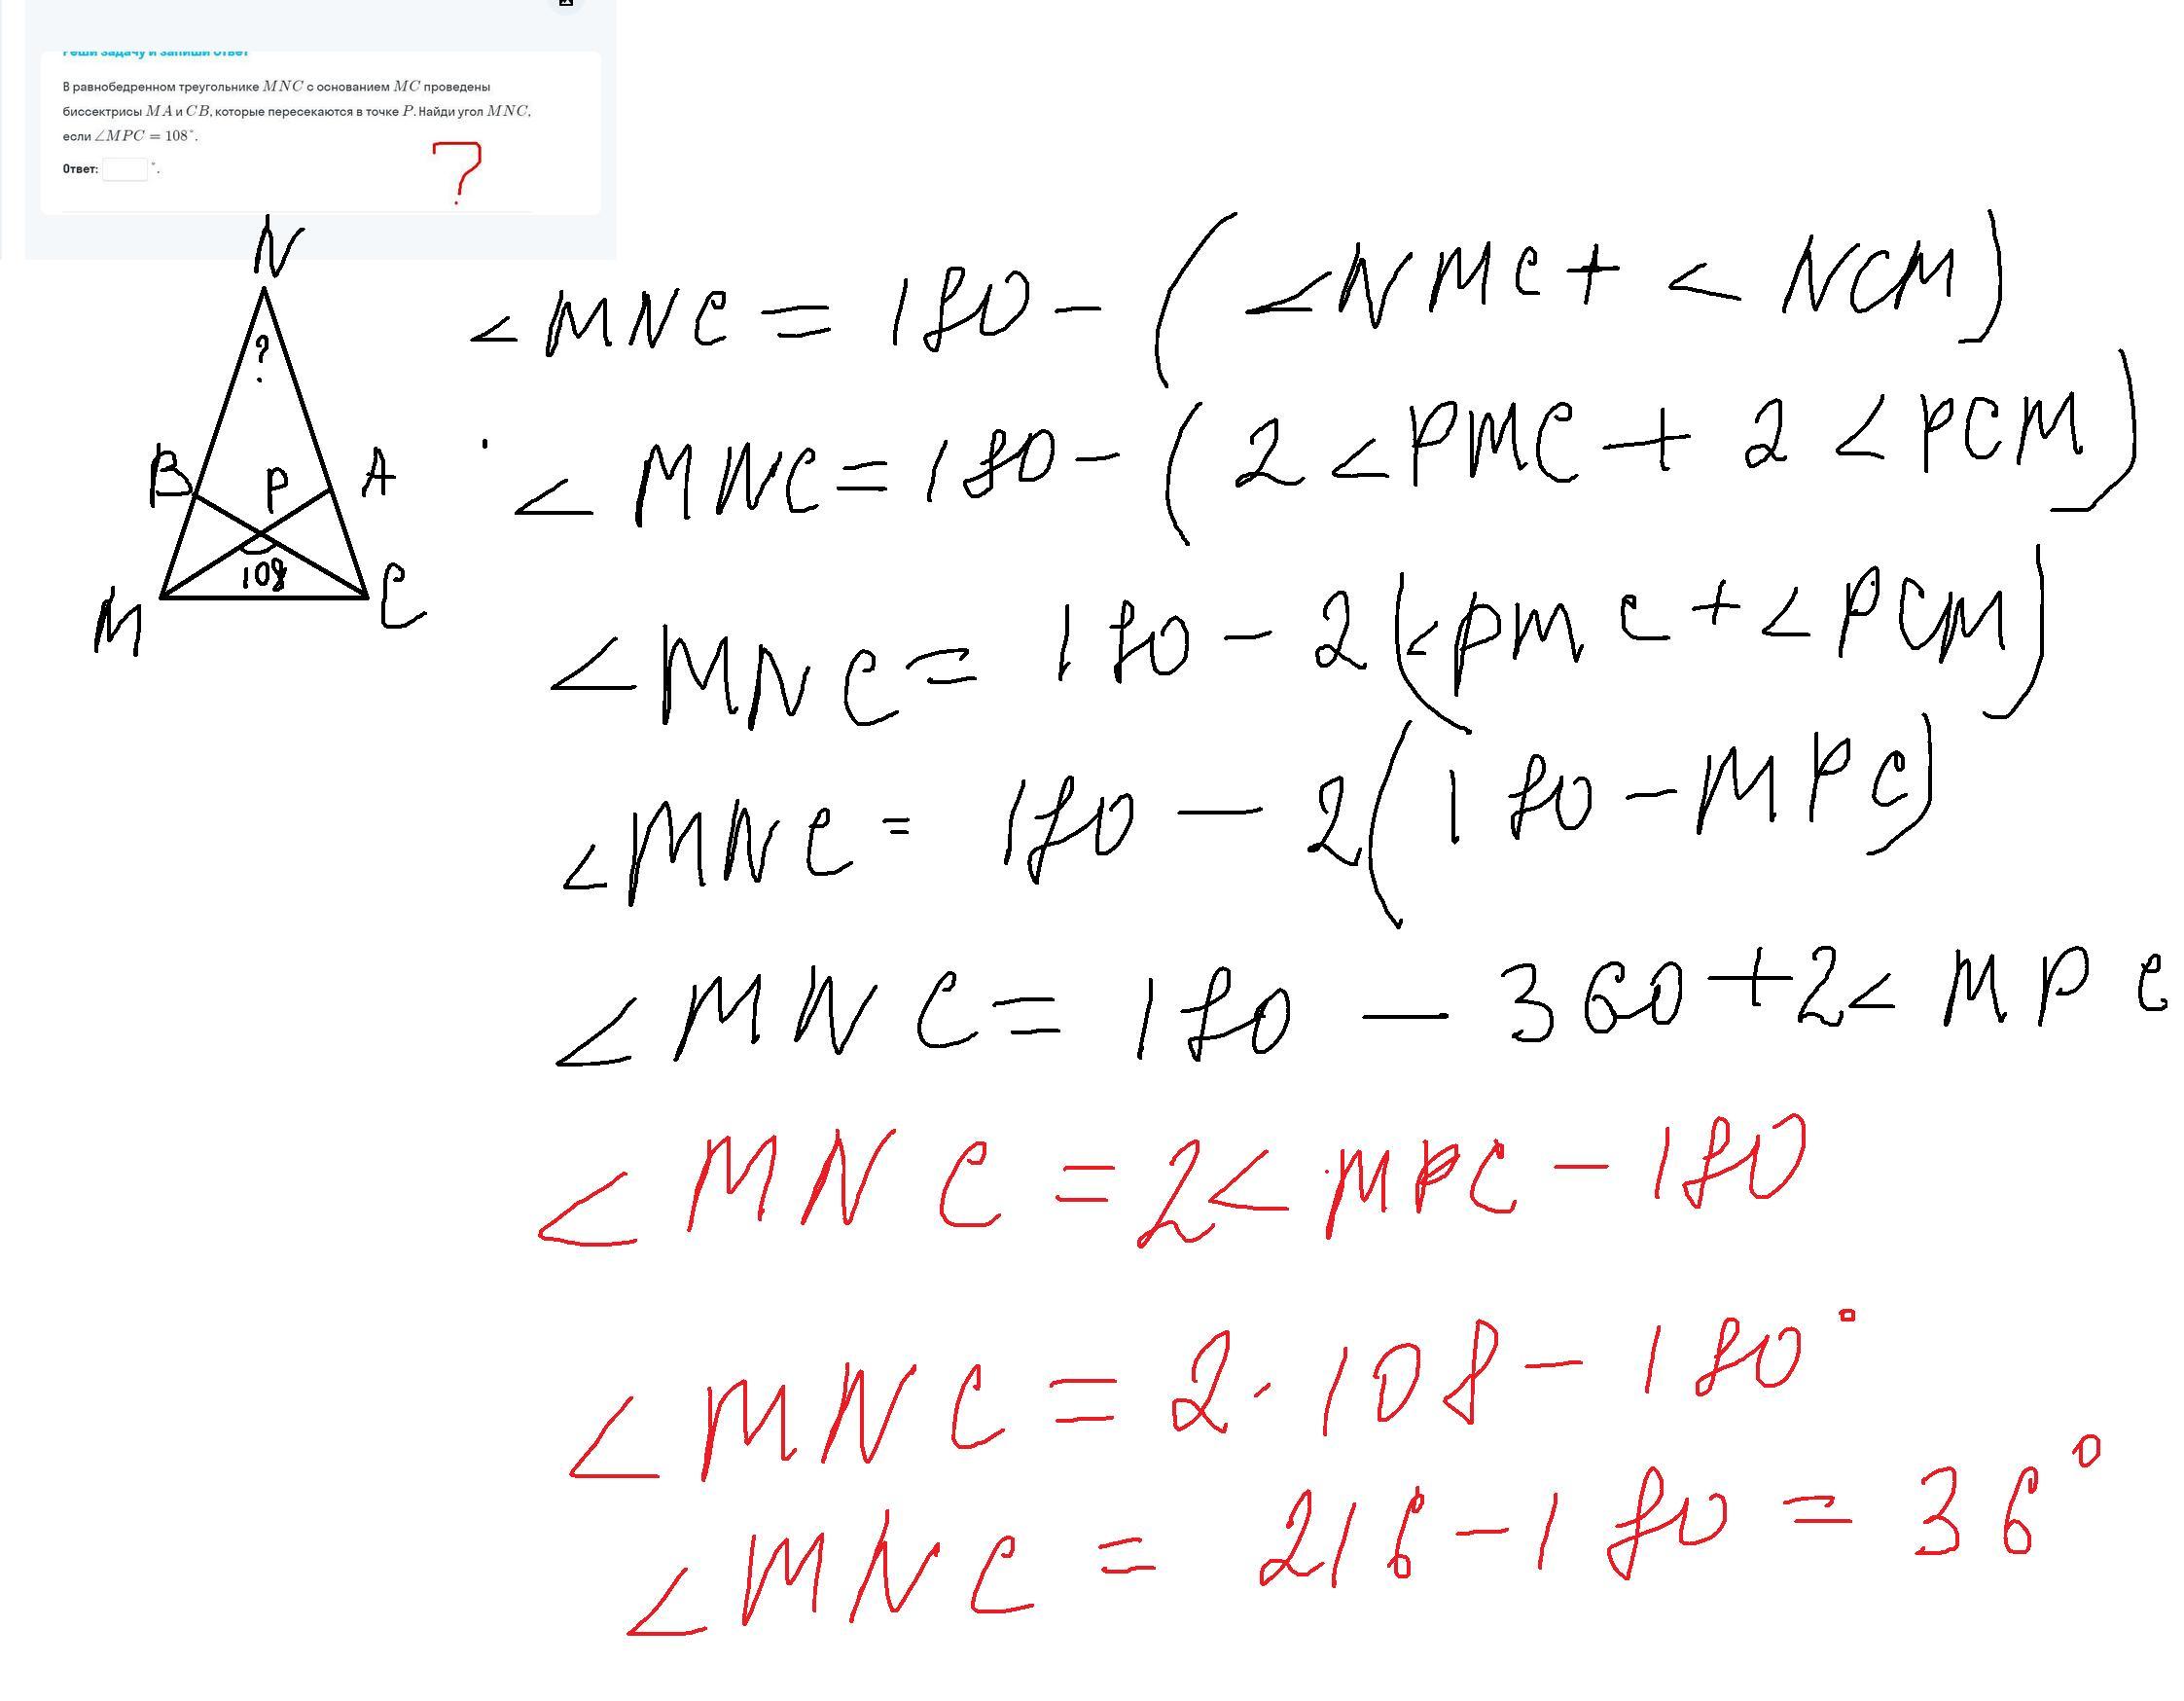 Реши задачу и запиши ответ
В равнобедренном треугольнике MNC с основанием MC проведены
биссектрисы MA и CB, которые пересекаются в точке P. Найди угол MNC,
если ∠MPC = 108°.
Ответ: °.
?
N
?
B P A
108
M C
<MNC = 180 - (<NMC + < NCM)
< MNC = 180 - (2 <PMC + 2 <PCM)
<MNC = 180 - 2(<PMC + <PCM)
<MNC = 180 - 2(180 - MPC)
<MNC = 180 - 360 + 2< MPC
<MNC = 2< MPC - 180
<MNC = 2 · 108 - 180°
<MNC = 216 - 180 = 36°